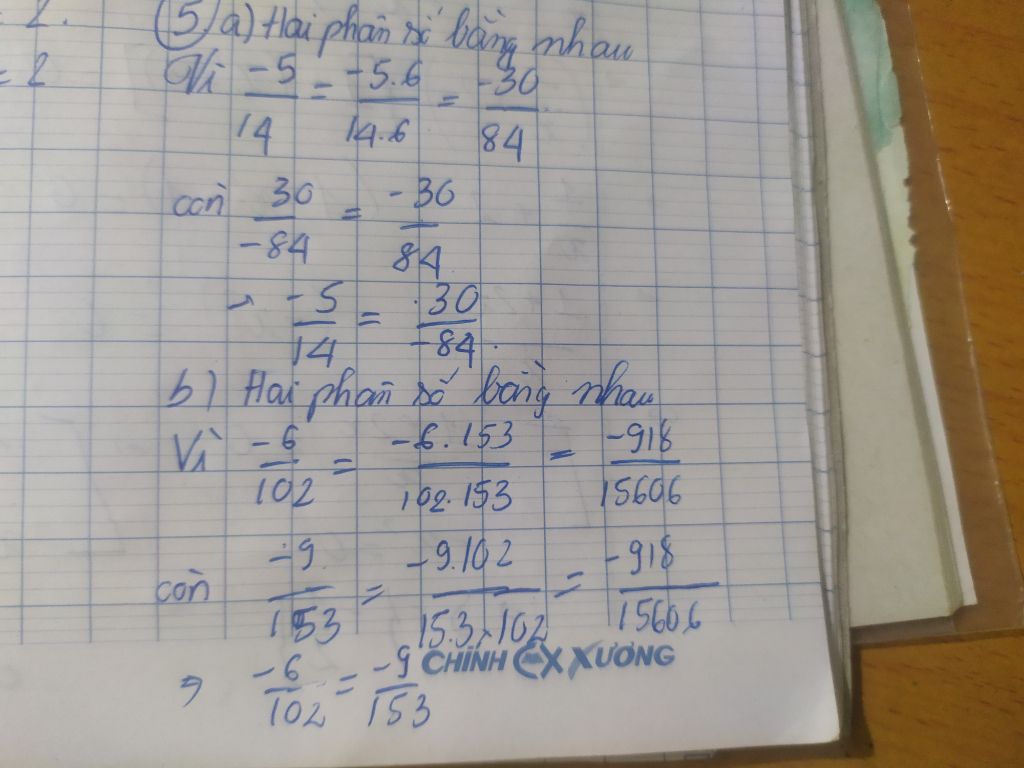 = 2. ⑤ a) Hai phân số bằng nhau
= 2 Vì -5/14 = -5.6/14.6 = -30/84
còn 30/-84 = -30/84
→ -5/14 = 30/-84.
b) Hai phân số bằng nhau
Vì -6/102 = -6.153/102.153 = -918/15606
còn -9/153 = -9.102/153.102 = -918/15606
CHÍNH XƯƠNG
⇒ -6/102 = -9/153